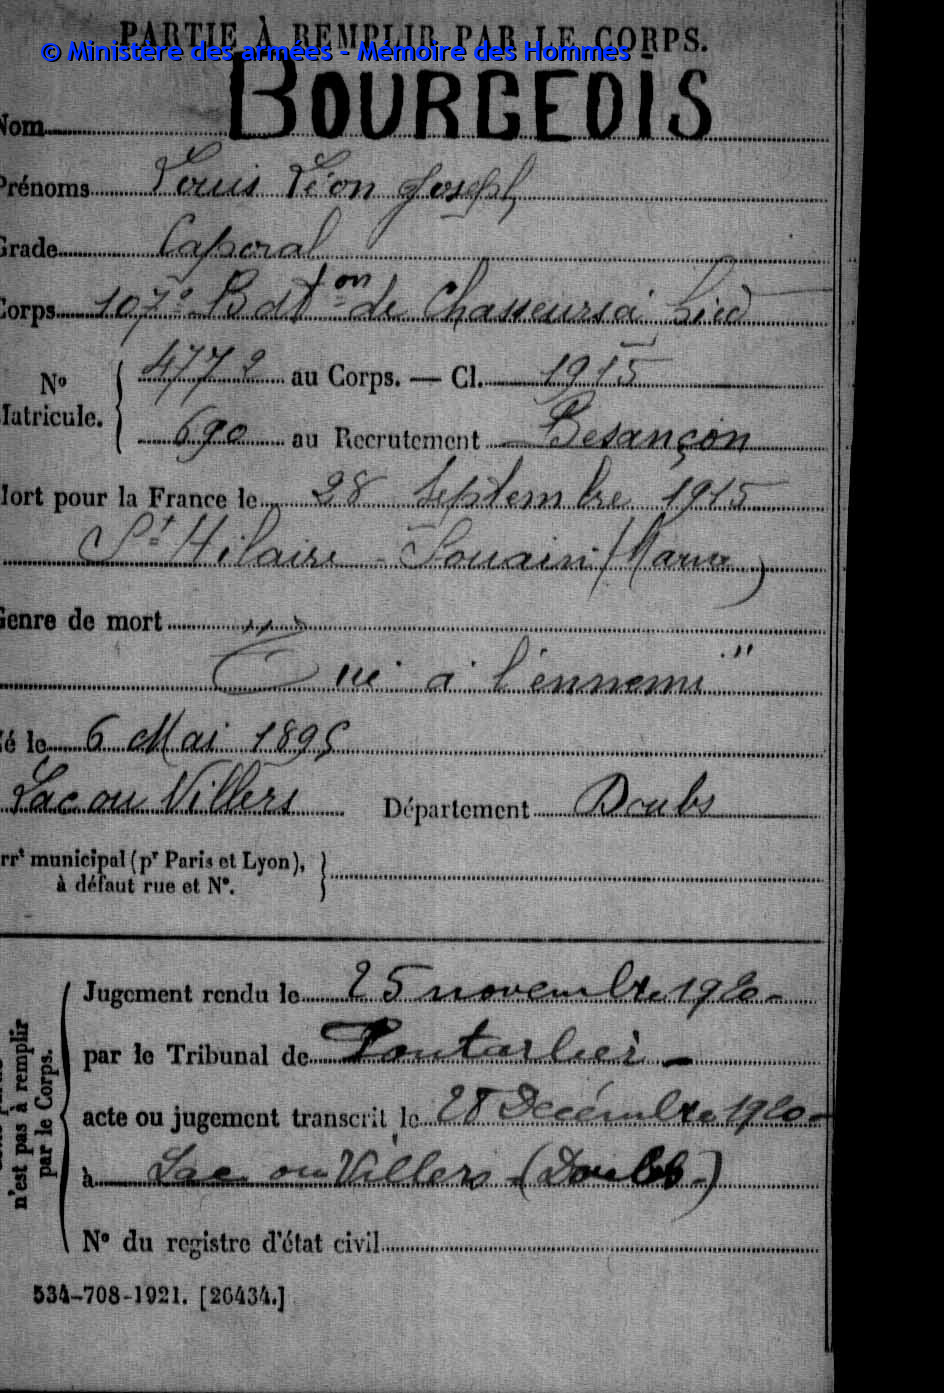 PARTIE À REMPLIR PAR LE CORPS.
© Ministère des armées - Mémoire des Hommes
Nom BOURGEOIS
Prénoms Louis Léon Joseph
Grade Caporal
Corps 107e Baton de Chasseurs à Pied
No Matricule. { 4772 au Corps. — Cl. 1915
690 au Recrutement Besançon
Mort pour la France le 28 Septembre 1915
St Hilaire - Souain (Marne)
Genre de mort
"Tué à l'ennemi"
Né le 6 Mai 1895
Lac ou Villers Département Doubs
arrt municipal (pr Paris et Lyon), à défaut rue et No. }
n'est pas à remplir par le Corps.
Jugement rendu le 25 novembre 1920 -
par le Tribunal de Pontarlier -
acte ou jugement transcrit le 28 Décembre 1920 -
à Lac ou Villers - (Doubs -)
No du registre d'état civil
534-708-1921. [26434.]